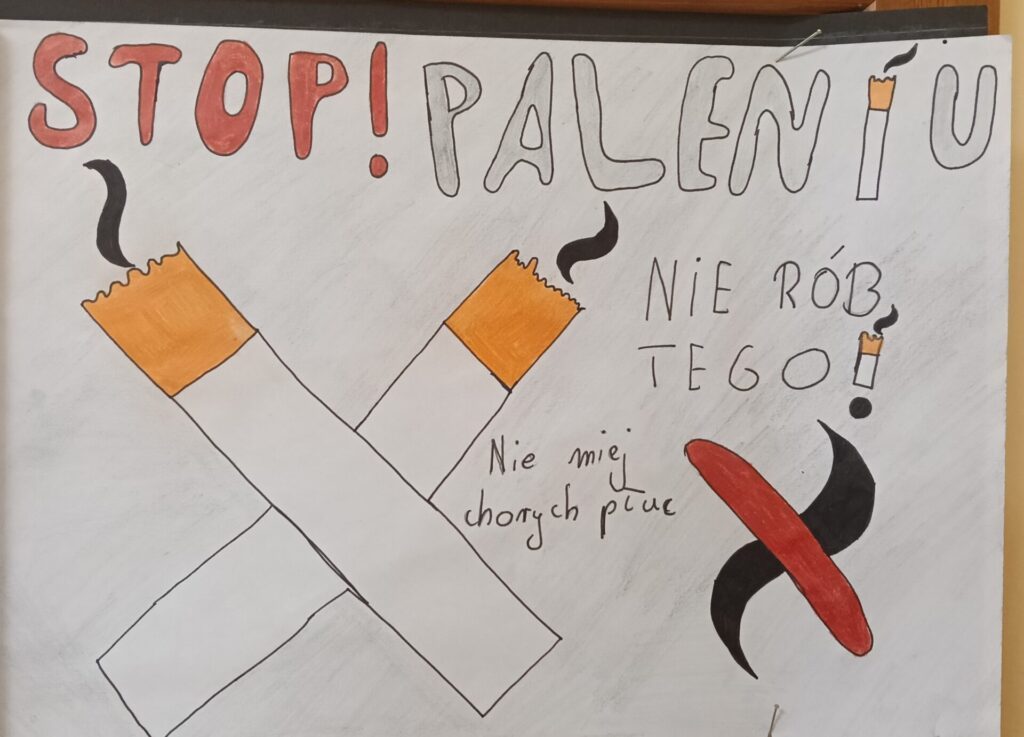 STOP! PALENIU
NIE RÓB
TEGO!
Nie miej
chorych płuc